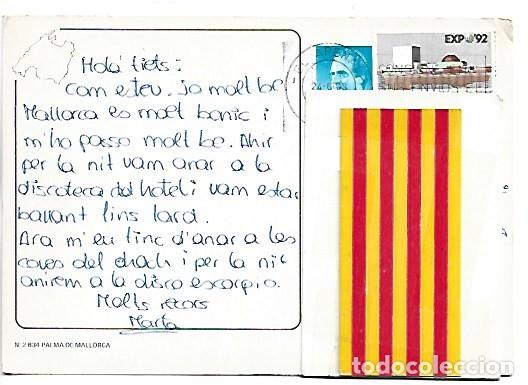 Hola tiets:
Com esteu. jo molt be.
Mallorca es molt bonic i
m'ho passo molt be. Ahir
per la nit vam anar a la
discoteca del hotel i vam estar
ballant fins tard.
Ara m'eu tinc d'anar a les
coves del drach i per la nit
anirem a la disco escorpio.
Molts records
Marta
N. 2 634 PALMA DE MALLORCA
EXPO'92
todocoleccion.net